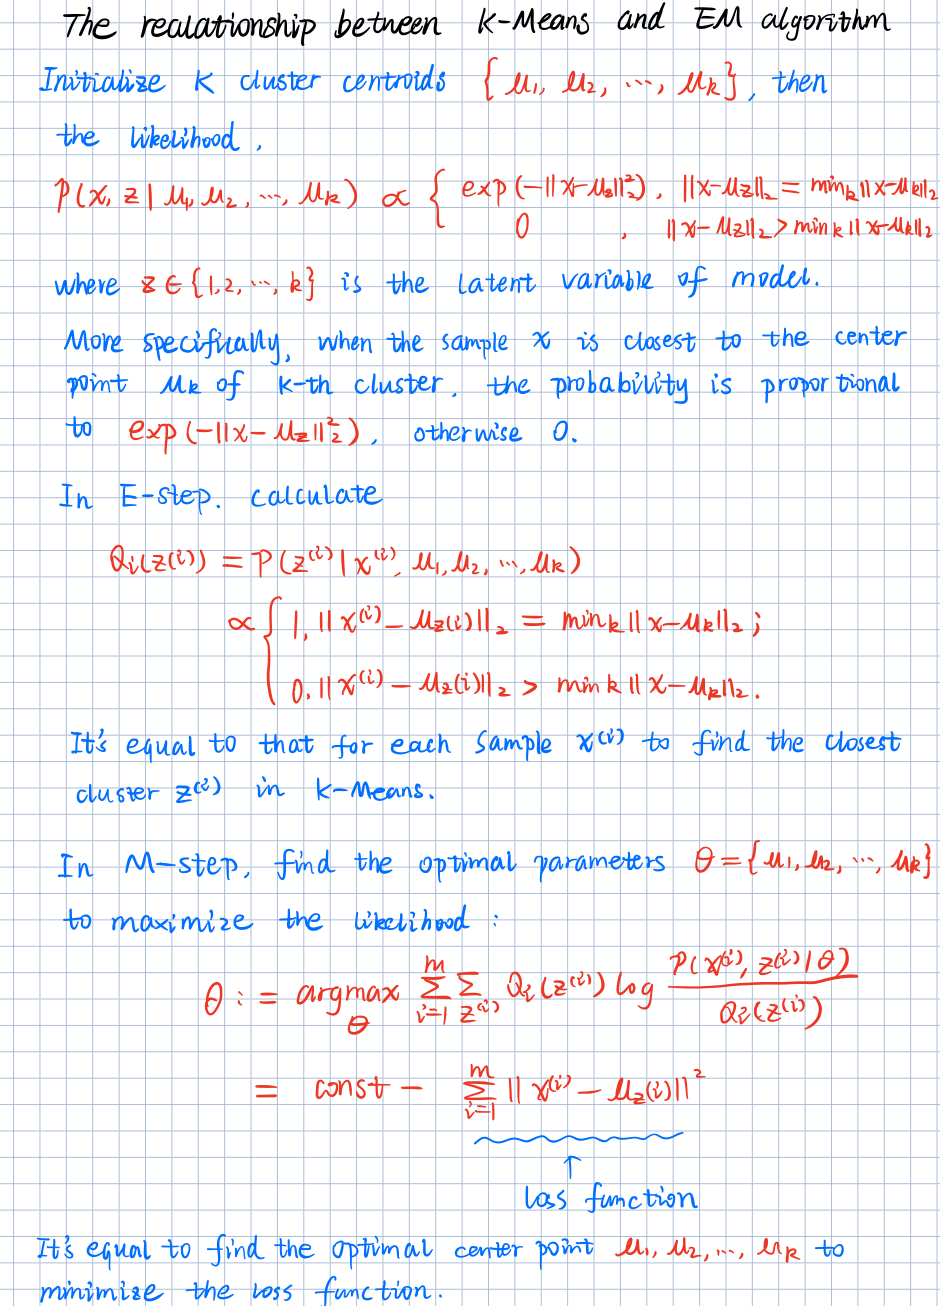 The realationship between K-Means and EM algorithm
Initialize K cluster centroids {μ₁, μ₂, ⋯, μₖ}, then
the likelihood,
P(x, z | μ₁, μ₂, ⋯, μₖ) ∝ { exp(-||x-μ_z||₂²), ||x-μ_z||₂ = min_k ||x-μ_k||₂
0 , ||x-μ_z||₂ > min_k ||x-μ_k||₂
where z ∈ {1, 2, ⋯, k} is the latent variable of model.
More specifically, when the sample x is closest to the center
point μₖ of k-th cluster, the probability is proportional
to exp(-||x-μ_z||₂²), otherwise 0.
In E-step. calculate
Qᵢ(z⁽ⁱ⁾) = P(z⁽ⁱ⁾ | x⁽ⁱ⁾, μ₁, μ₂, ⋯, μₖ)
∝ { 1, ||x⁽ⁱ⁾ - μ_z(i)||₂ = min_k ||x-μ_k||₂ ;
0, ||x⁽ⁱ⁾ - μ_z(i)||₂ > min_k ||x-μ_k||₂.
It's equal to that for each sample x⁽ⁱ⁾ to find the closest
cluster z⁽ⁱ⁾ in K-Means.
In M-step, find the optimal parameters θ = {μ₁, μ₂, ⋯, μₖ}
to maximize the likelihood :
θ := argmax_θ Σ_{i=1}^{m} Σ_{z⁽ⁱ⁾} Qᵢ(z⁽ⁱ⁾) log P(x⁽ⁱ⁾, z⁽ⁱ⁾ | θ) / Qᵢ(z⁽ⁱ⁾)
= const - Σ_{i=1}^{m} ||x⁽ⁱ⁾ - μ_z(i)||²
↑
loss function
It's equal to find the optimal center point μ₁, μ₂, ⋯, μₖ to
minimize the loss function.